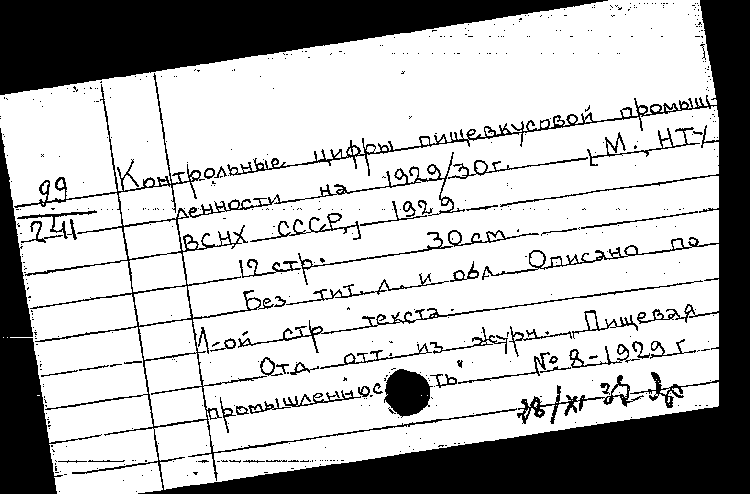 99
241
Контрольные цифры пищевкусовой промыш
ленности на 1929/30г. [М., НТУ
ВСНХ СССР,] 1929
12 стр. 30 см.
Без тит. л. и обл. Описано по
1-ой стр текста.
Отд. отт. из журн. „Пищевая
промышленнос ть" № 8-1929 г